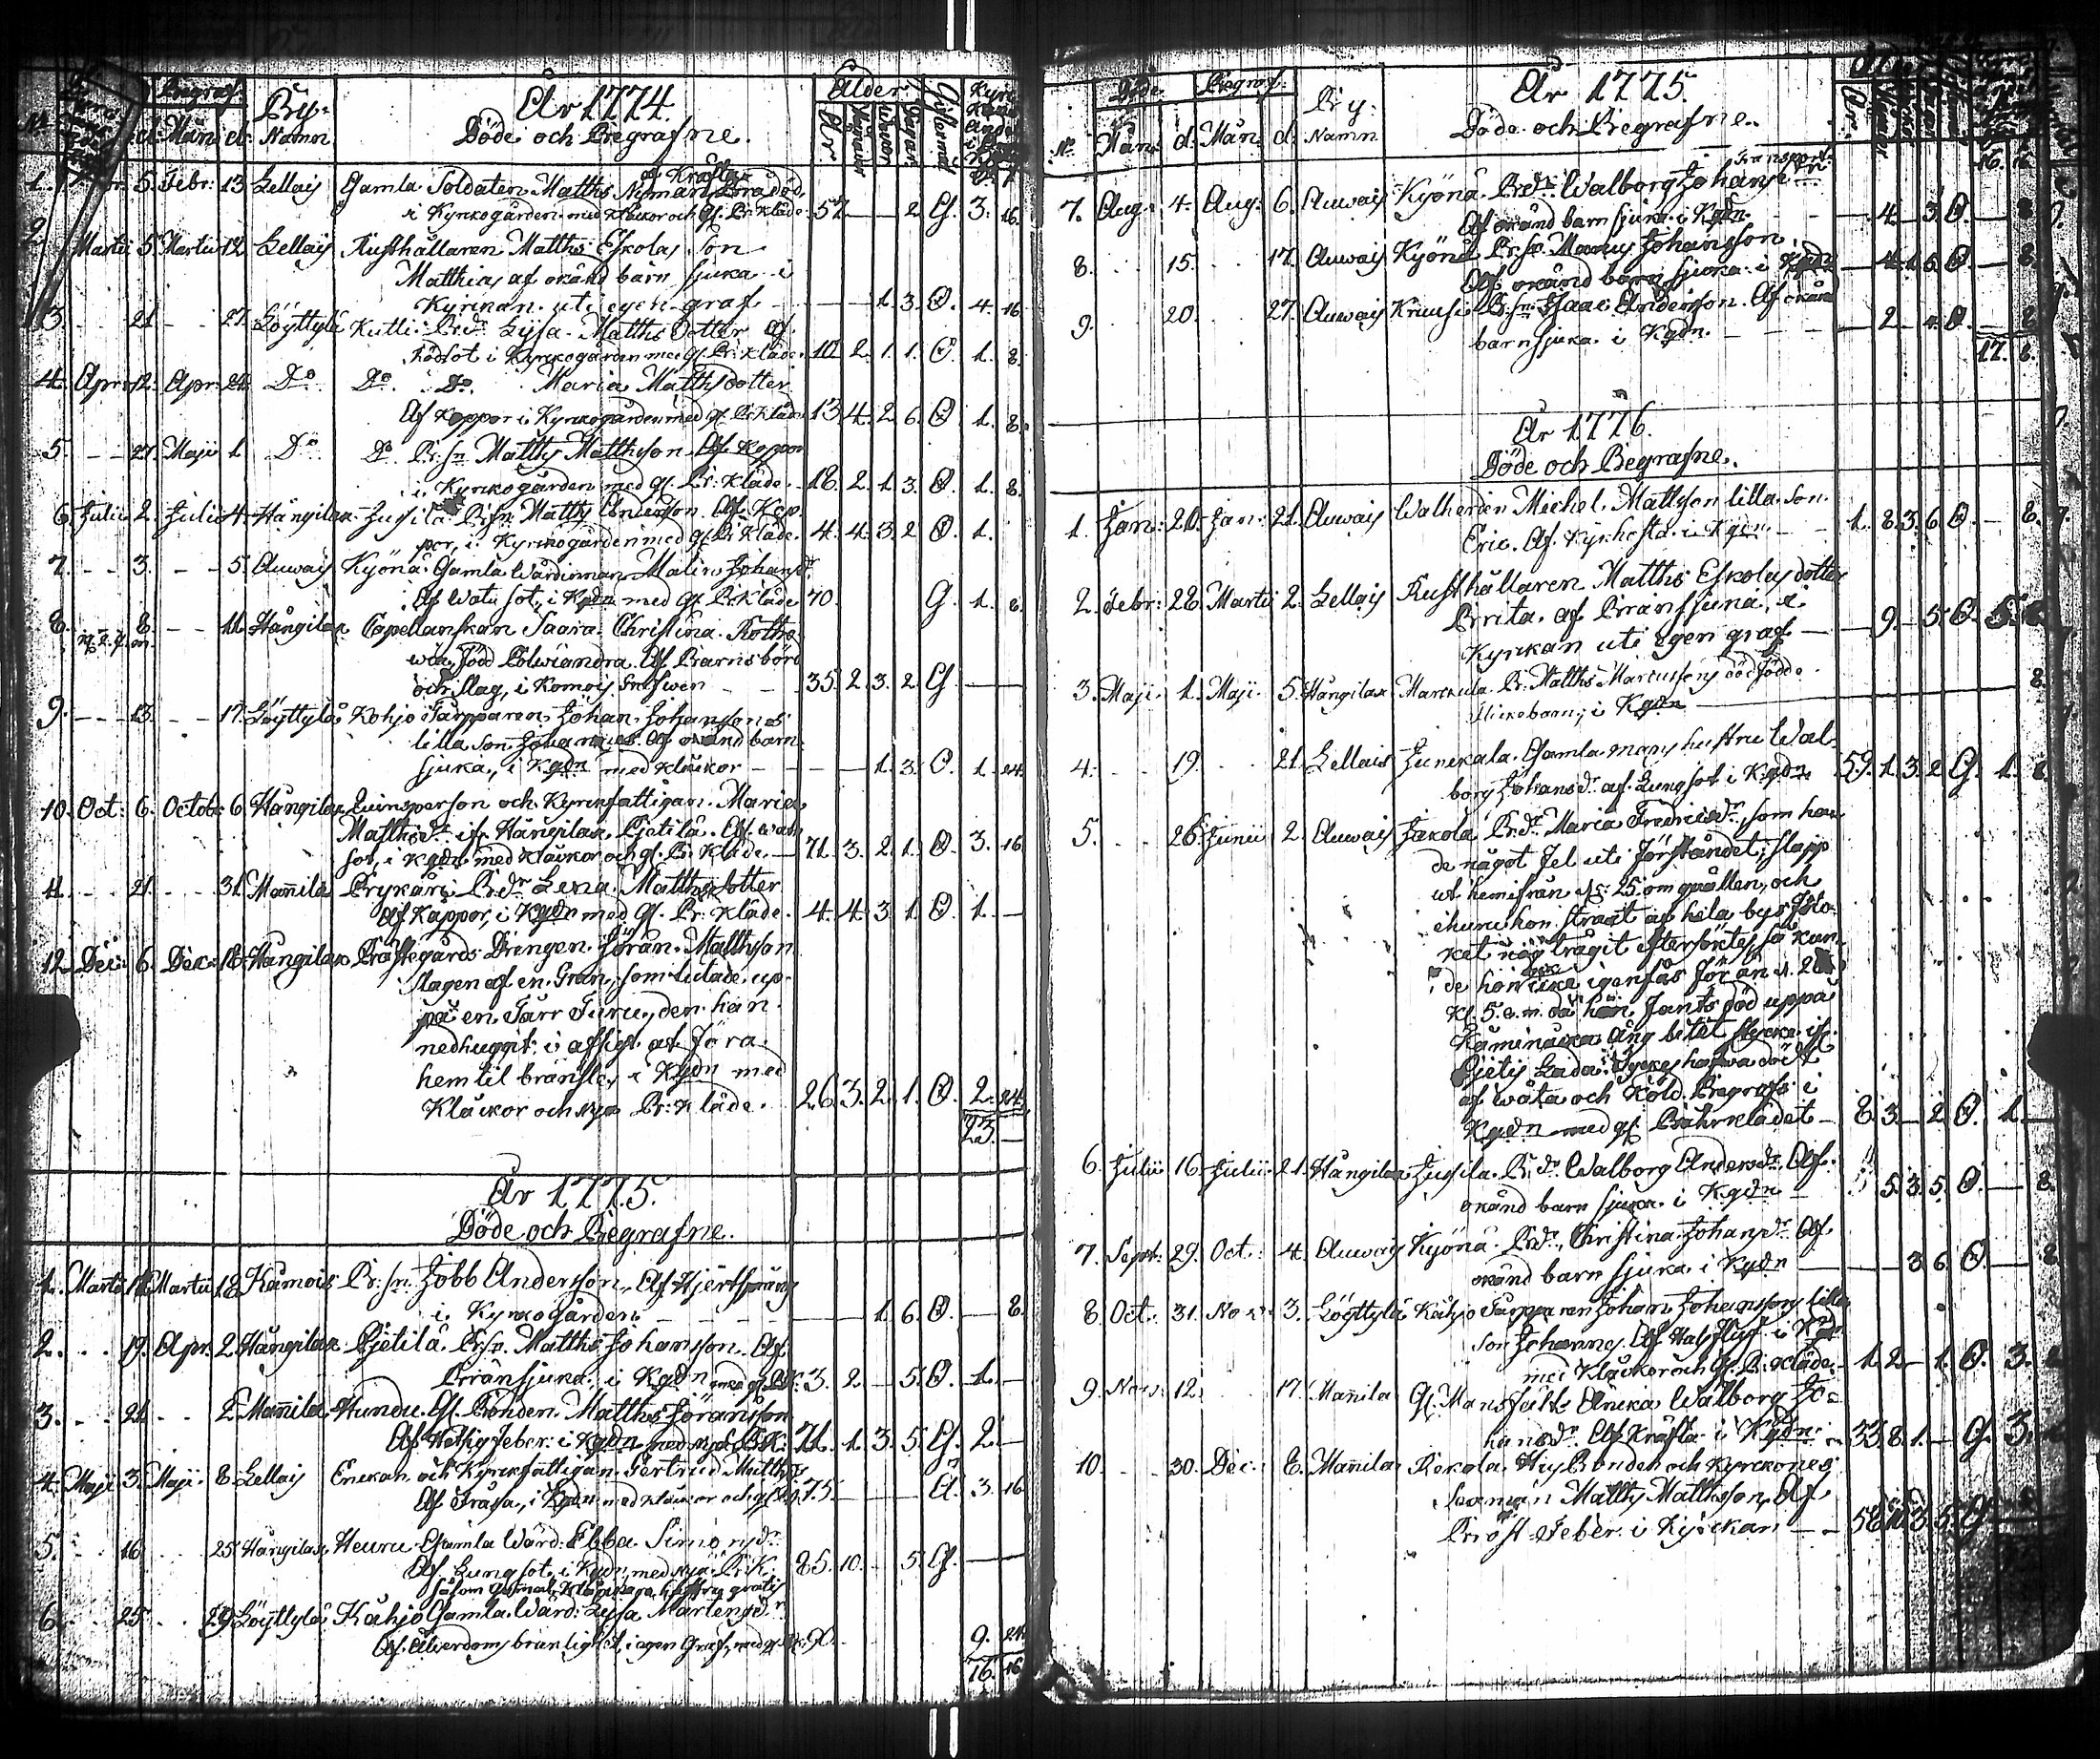 Begraf. By= År 1774. Ålder Giftomål
No d. Mån d. Namn Döde och Begrafne. År Månader Wekor Dagar
af Kräftan
1. 5. Febr: 13 Lellais Gamla Soldaten Matths Nyman död
i Kyrkogården med klåckor och Gl. Br: kläde 57 — — 2 G. 3. 16
2. Martii 5 Martii 12 Lellais Rusthållaren Matths Eskolas Son
Matthias af okänd barn sjuka i
Kyrkan uti egen graf — — 1 3. O. 4. 16
3 21 27. Löyttylä Kutti Br.dr Lijsa Matths dotter af
Rödsot i Kyrkogården med gl. Br: kläde 10 2. 1. 1. O. 1. 8.
4. Apr: 12. Apr: 24 Do Do Do Maria Matthsdotter
Af Koppor i Kyrkogården med gl. Br. kläde 13 4. 2 6. O 1. 8.
5. 27. Maji 1 Do Do Br: sn Matths Matthsson Af Koppor
i Kyrkogården med gl. Br: kläde 18. 2. 1. 3. O. 1. 8.
6. Julii 2. Julii 4 Hångilax Jusila Br: sn Matths Andersson Af Kop=
por, i Kyrkogården med gl. Br kläde. 4. 4. 3. 2 O. 1.
7. 3. 5. Auwais Kyönä Gamla Wärdinnan Malin Johansdr.
Af Watu sot, i Kgdn med gl. Br. kläde 70. G. 1. 8.
8. 8. 11. Hångilax Capellanskan Saara Christina
född Polwiandra. Af Barnsbörd
och slag, i Komois 35. 2. 3. 2. G. —
9. 13. 17. Löyttylä Kohjo Tårpparen Johan Johanssons
lilla son Johannes. Af okänd barn
sjuka, i Kgdn med klåckor — — 1. 3. O. 1. 24.
10. Oct: 6. Octob: 6. Hångilax Quinsperson och Kyrkfattigan Maria
Matthsdr ifr. Hångilax Pietilä. Af watu
sot, i Kgdn med klåckor och gl. Br. kläde. — 71. 3. 2. 1. O 3. 16
11. 21. 31. Mannila Prykäri Br.dr Lena Matthsdotter
Af Kåppor, i Kgdn med Gl. Br: kläde. 4. 4. 3. 1. O 1. —
12. Dec: 6. Dec: 18. Hångilax Prästegårds Drengen Jöran Matthsson
slagen af en Gran, som lutade up=
på en Tårr Furu, den han
nedhuggit i afsigt at föra
hem til bränsle, i Kgdn med
Klåckor och nya Br: kläde. 26. 3. 2. 1. O. 2. 24.
23. —
År 1775.
Döde och Begrafne.
1. Martii Martii 12. Kumois Br: sn Jobb Andersson. Af Hjertsprång
i Kyrkogården — — 1 6 O. — 8.
2. 19. Apr. 2. Hångilax Pietilä Br: sn. Matths Johansson. Af
Brånsjuka, i Kgdn med gl. BK: 3. 2 — 5. O. 1. —
3. 21 2. Mannila Hundu. Gl. Bonden Matths Jöransson
Af Hetsig feber i Kgdn med nya B.K. 71. 1. 3. 5. G. 2. —
4. Maji 3. Maji 8. Lellais Enckan och Kyrkfattigan Gertrud Matthsdr
Af Tråsa, i Kgdn med klåckor och gl. 75. — — 3. 16
5. 16 25. Hångilax Heuru Gamla Wärd: Ebba Simonsdr
Af Lungsot, i Kgdn, med nya Br. K. 85. 10. — 5. G. —
såsom gamal Klåckare hustru gratis
6. 25 29. Löyttylä Kähjo Gamla Wärd: Lijsa Mårtensdr
Af Ålderdoms bräcklighet, i egen Graf, med gl. 90. 9. 24
16. 16
Döde Begraf: By: År 1775.
No Mån: d. Mån d. Namn Döde och Begrafne.
Transport: 16. 16.
7. Aug: 4. Aug: 6. Auwais Kyönä Br.dr Walborg Johansdr
Af okänd barn sjuka i Kgdn. — 4. 3. O. — 8
8. 15. 17. Auwais Kyönä Br. sn Marcus Johansson.
Af okänd barn sjuka i Kgdn — 4. 1. 5. O. — 8.
9. 20. 27. Auwais Kruusi Br: sn Isaac Andersson. Af okänd
barnsjuka i Kgdn. — — 2 4. O. 8
17. 8.
År 1776.
Döde och Begrafne.
1. Jan: 20. Jan: 21. Auwais Walherden Michel Mattsson lilla son
Eric. Af Kykhosta. i Kgdn. — 1. 8. 3. 6 O. — 8.
2. Febr: 28. Martii 2. Lellais Rusthållaren Matths Eskolas dotter
Brita. af Brånsjuka, i
Kyrkan uti egen graf — — 9. — 5. O. 5.
3. Maji 1. Maji 5. Hångilax Marckula Br. Matths Marcussons dödfödde
flickebarn, i Kgdn — 8.
4. 19. 21. Lellais Junckala Gamla mans hustru Wal=
borg Johansdr af Lungsot i Kgdn 59. 1. 3. 2 G. 1. 8.
5. 26. Junii 2. Auwais Jakola Br.dr Maria Fredricsdr, som ha=
de något fel uti förståndet, slapp
ut hemifrån d. 25 om qvällen, och
ehuru hon straxt af hela bys folc=
ket nog trägit eftersöktes, så kun=
de hon icke igenfås för än d. 26
Kl. 5. e. m. då hon fants död uppå
Käminäcka äng betet stycke if.
Pietis Lada. Tyckes hafwa dödt
af wåta och Köld. Begrofs i
Kgdn med gl. Bårklädet — 8. 3 — 2 O. 1.
6. Julii 16. Julii 21. Hångilax Jussila Br.dr Walborg Andersdr. Af
okänd barn sjuka i Kgdn — 5. 3. 5. O. — 8.
7. Sept: 29. Oct: 4. Auwais Kyönä Br.dr, Christina Johansdr Af
okänd barn sjuka i Kgdn — — 3 6 O. — 8.
8. Oct: 31. Nov: 3. Löyttylä Kähjo Tårpparen Johan Johanssons lille
son Johannes. Af Halsflus i Kgdn
med Klåckor och Gl. Br. kläde — 1. 2 — 1. O. 3.
9. Nov: 12. 17. Mannila Gl. Mansfält Änckia Walborg Jo=
hansdr. Af Kräfta i Kgdn 33. 8. 1. — G. 3.
10. 30. Dec: 8. Mannila Rekola Ny Bonden och Kyrckones
Sexman Matths Matthsson. Af
Bröst Feber i Kyrckan — 58. 10. 3. 5. G